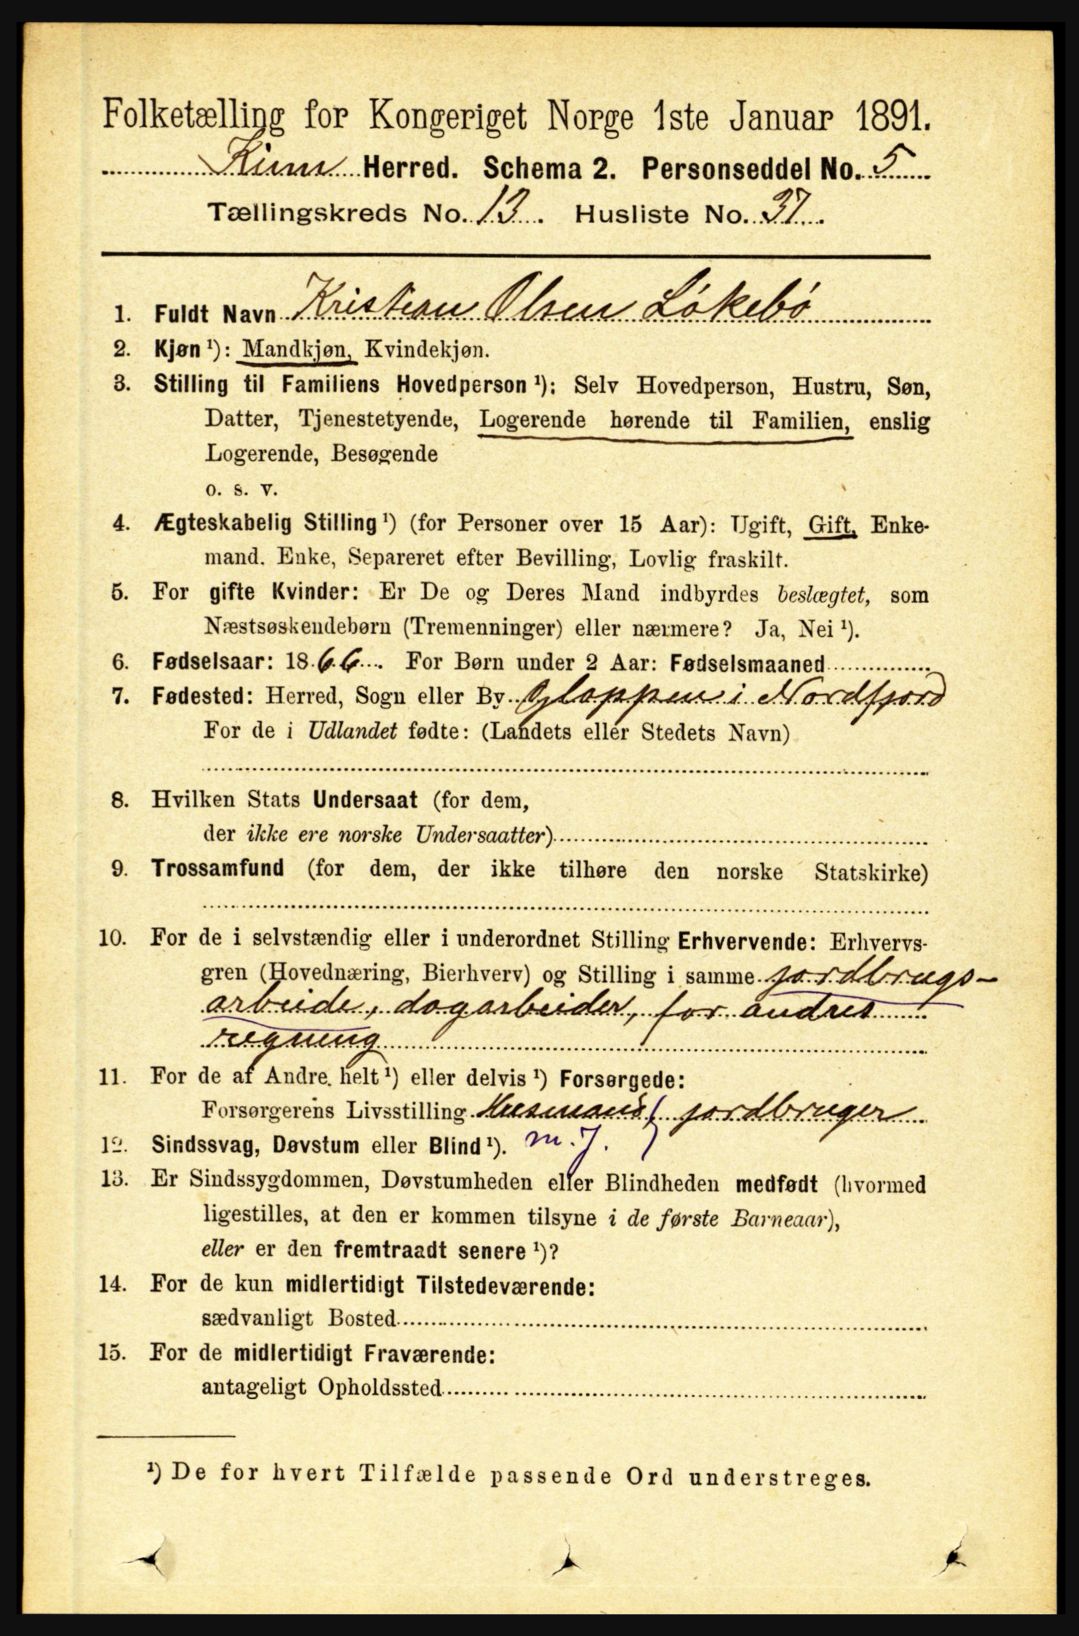 Folketælling for Kongeriget Norge 1ste Januar 1891.
Kinn Herred. Schema 2. Personseddel No. 5
Tællingskreds No. 13. Husliste No. 37.
1. Fuldt Navn Kristian Olsen Løkebø
2. Kjøn ¹): Mandkjøn, Kvindekjøn.
3. Stilling til Familiens Hovedperson ¹): Selv Hovedperson, Hustru, Søn,
Datter, Tjenestetyende, Logerende hørende til Familien, enslig
Logerende, Besøgende
o. s. v.
4. Ægteskabelig Stilling ¹) (for Personer over 15 Aar): Ugift, Gift, Enke-
mand. Enke, Separeret efter Bevilling, Lovlig fraskilt.
5. For gifte Kvinder: Er De og Deres Mand indbyrdes beslægtet, som
Næstsøskendebørn (Tremenninger) eller nærmere? Ja, Nei ¹).
6. Fødselsaar: 1866. For Børn under 2 Aar: Fødselsmaaned
7. Fødested: Herred, Sogn eller By Gloppen i Nordfjord
For de i Udlandet fødte: (Landets eller Stedets Navn)
8. Hvilken Stats Undersaat (for dem,
der ikke ere norske Undersaatter)
9. Trossamfund (for dem, der ikke tilhøre den norske Statskirke)
10. For de i selvstændig eller i underordnet Stilling Erhvervende: Erhvervs-
gren (Hovednæring, Bierhverv) og Stilling i samme jordbrugs-
arbeide, dagarbeider, for andres
regning
11. For de af Andre helt ¹) eller delvis ¹) Forsørgede:
Forsørgerens Livsstilling Husmand jordbruger
12. Sindssvag, Døvstum eller Blind ¹). m. J.
13. Er Sindssygdommen, Døvstumheden eller Blindheden medfødt (hvormed
ligestilles, at den er kommen tilsyne i de første Barneaar),
eller er den fremtraadt senere ¹)?
14. For de kun midlertidigt Tilstedeværende:
sædvanligt Bosted
15. For de midlertidigt Fraværende:
antageligt Opholdssted
¹) De for hvert Tilfælde passende Ord understreges.